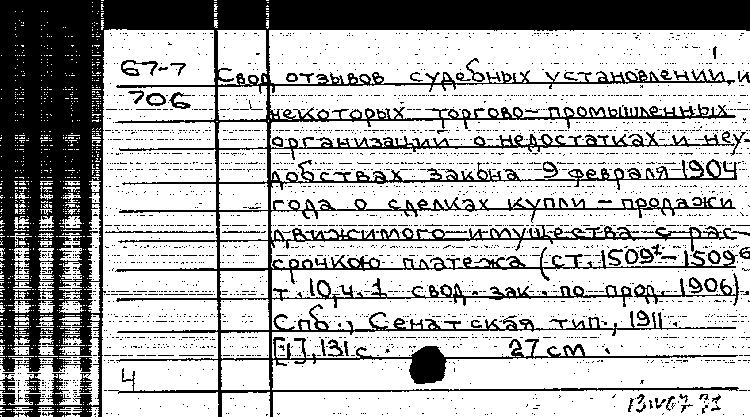 67-7 Свод отзывов судебных установлений и
706 некоторых торгово-промышленных
организаций о недостатках и неу-
добствах закона 9 февраля 1904
года о сделках купли-продажи
движимого имущества с рас-
срочкою платежа (ст. 1509¹-1509⁶
т. 10, ч. 1 свод. зак. по прод. 1906).
Спб., Сенатская тип., 1911.
[1], 131 с. 27 см.
4